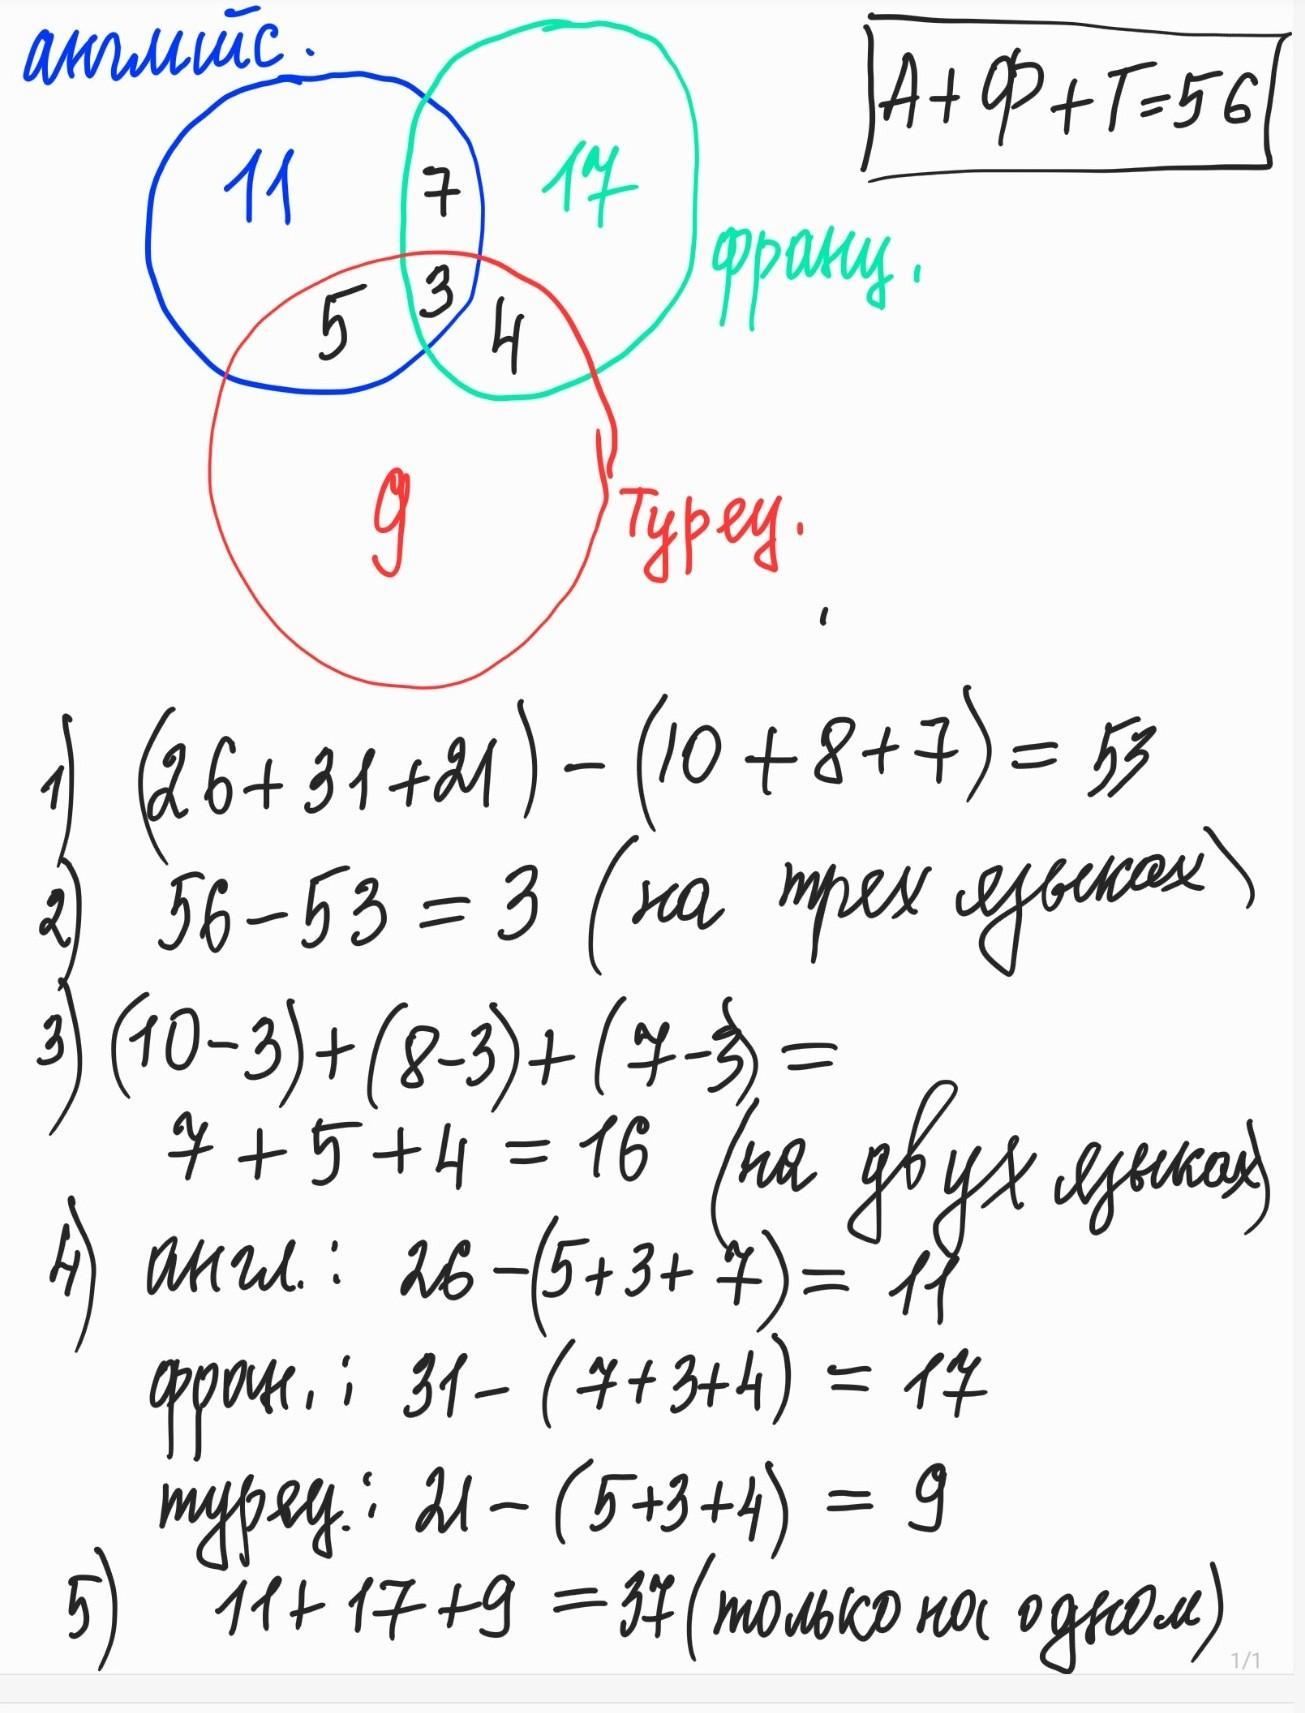 английс.
А+Ф+Т=56
11
7
17
франц.
5
3
4
9
Турец.
1) (26+31+21)-(10+8+7)=53
2) 56-53=3 (на трех языках)
3) (10-3)+(8-3)+(7-3)=
7+5+4=16 (на двух языках)
4) англ.: 26-(5+3+7)=11
фран.: 31-(7+3+4)=17
турец.: 21-(5+3+4)=9
5) 11+17+9=37 (только на одном)
1/1